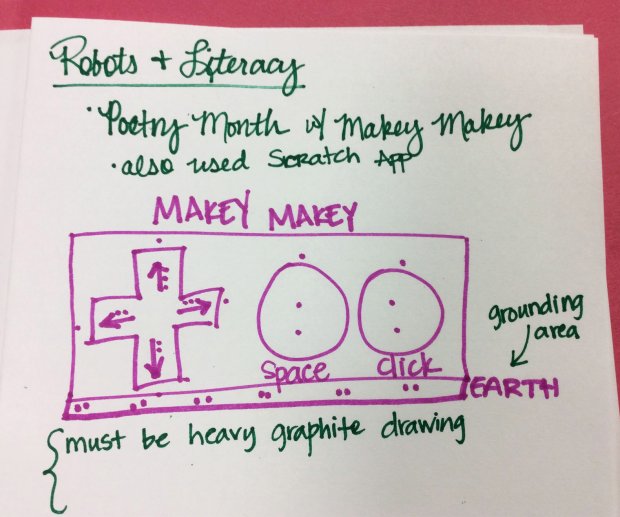 Robots + Literacy
· Poetry Month w/ Makey Makey
· also used Scratch App
MAKEY MAKEY
grounding
area
space
click
EARTH
must be heavy graphite drawing